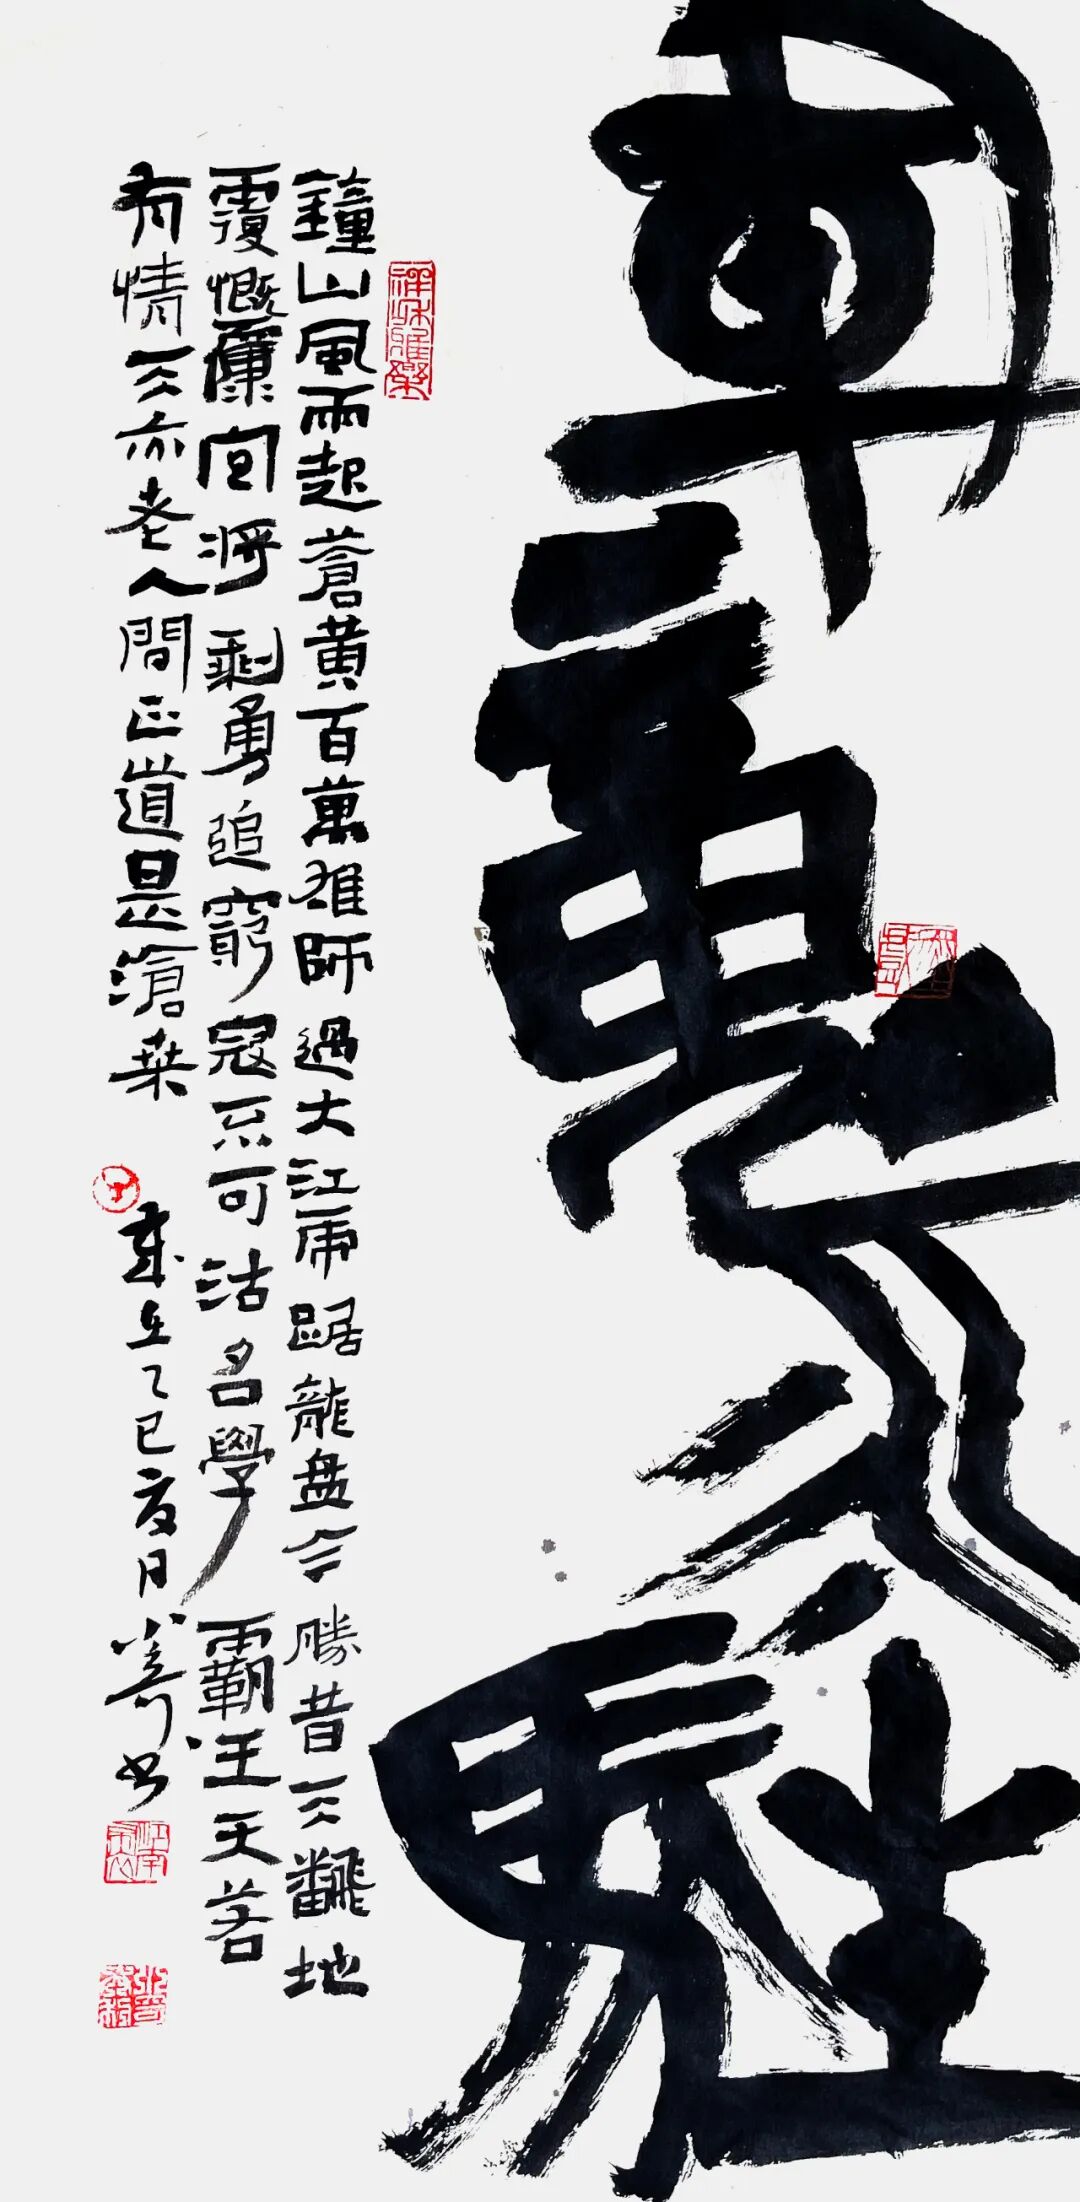 軍魂永駐
鐘山風雨起蒼黃百萬雄師過大江虎踞龍盤今勝昔天飜地
覆慨而慷宜將剩勇追窮寇不可沽名學霸王天若
有情天亦老人間正道是滄桑 歲在乙巳夏月 书